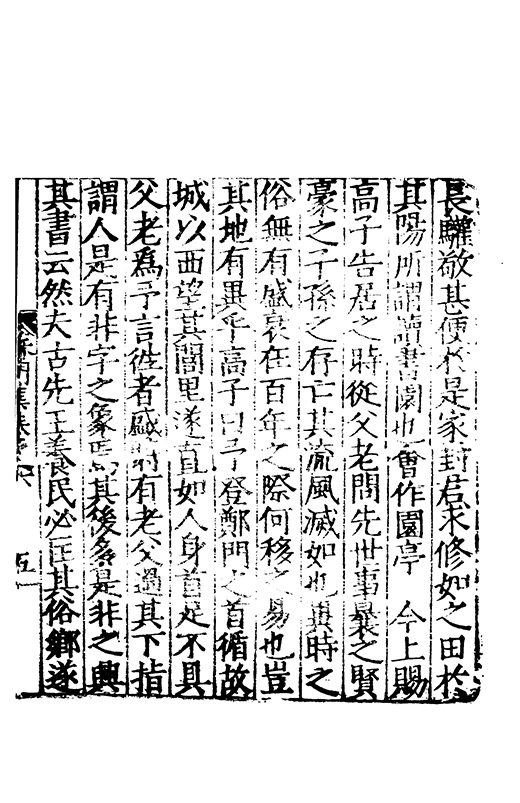 長驩敬甚便於是家封君求修如之田於
其陽所謂讀書園也會作園亭 今上賜
高子告居之時從父老問先世事曩之賢
豪之子孫之存亡其流風滅如也與時之
俗無有盛衰在百年之際何移之易也豈
其地有異乎高子曰予登鄭門之首循故
城以西望其閭里遂直如人身首足不具
父老為予言徃者盛時有老父過其下指
謂人是有非字之象焉其後多是非之興
其書云然夫古先王養民必匡其俗鄉遂
門集卷
五